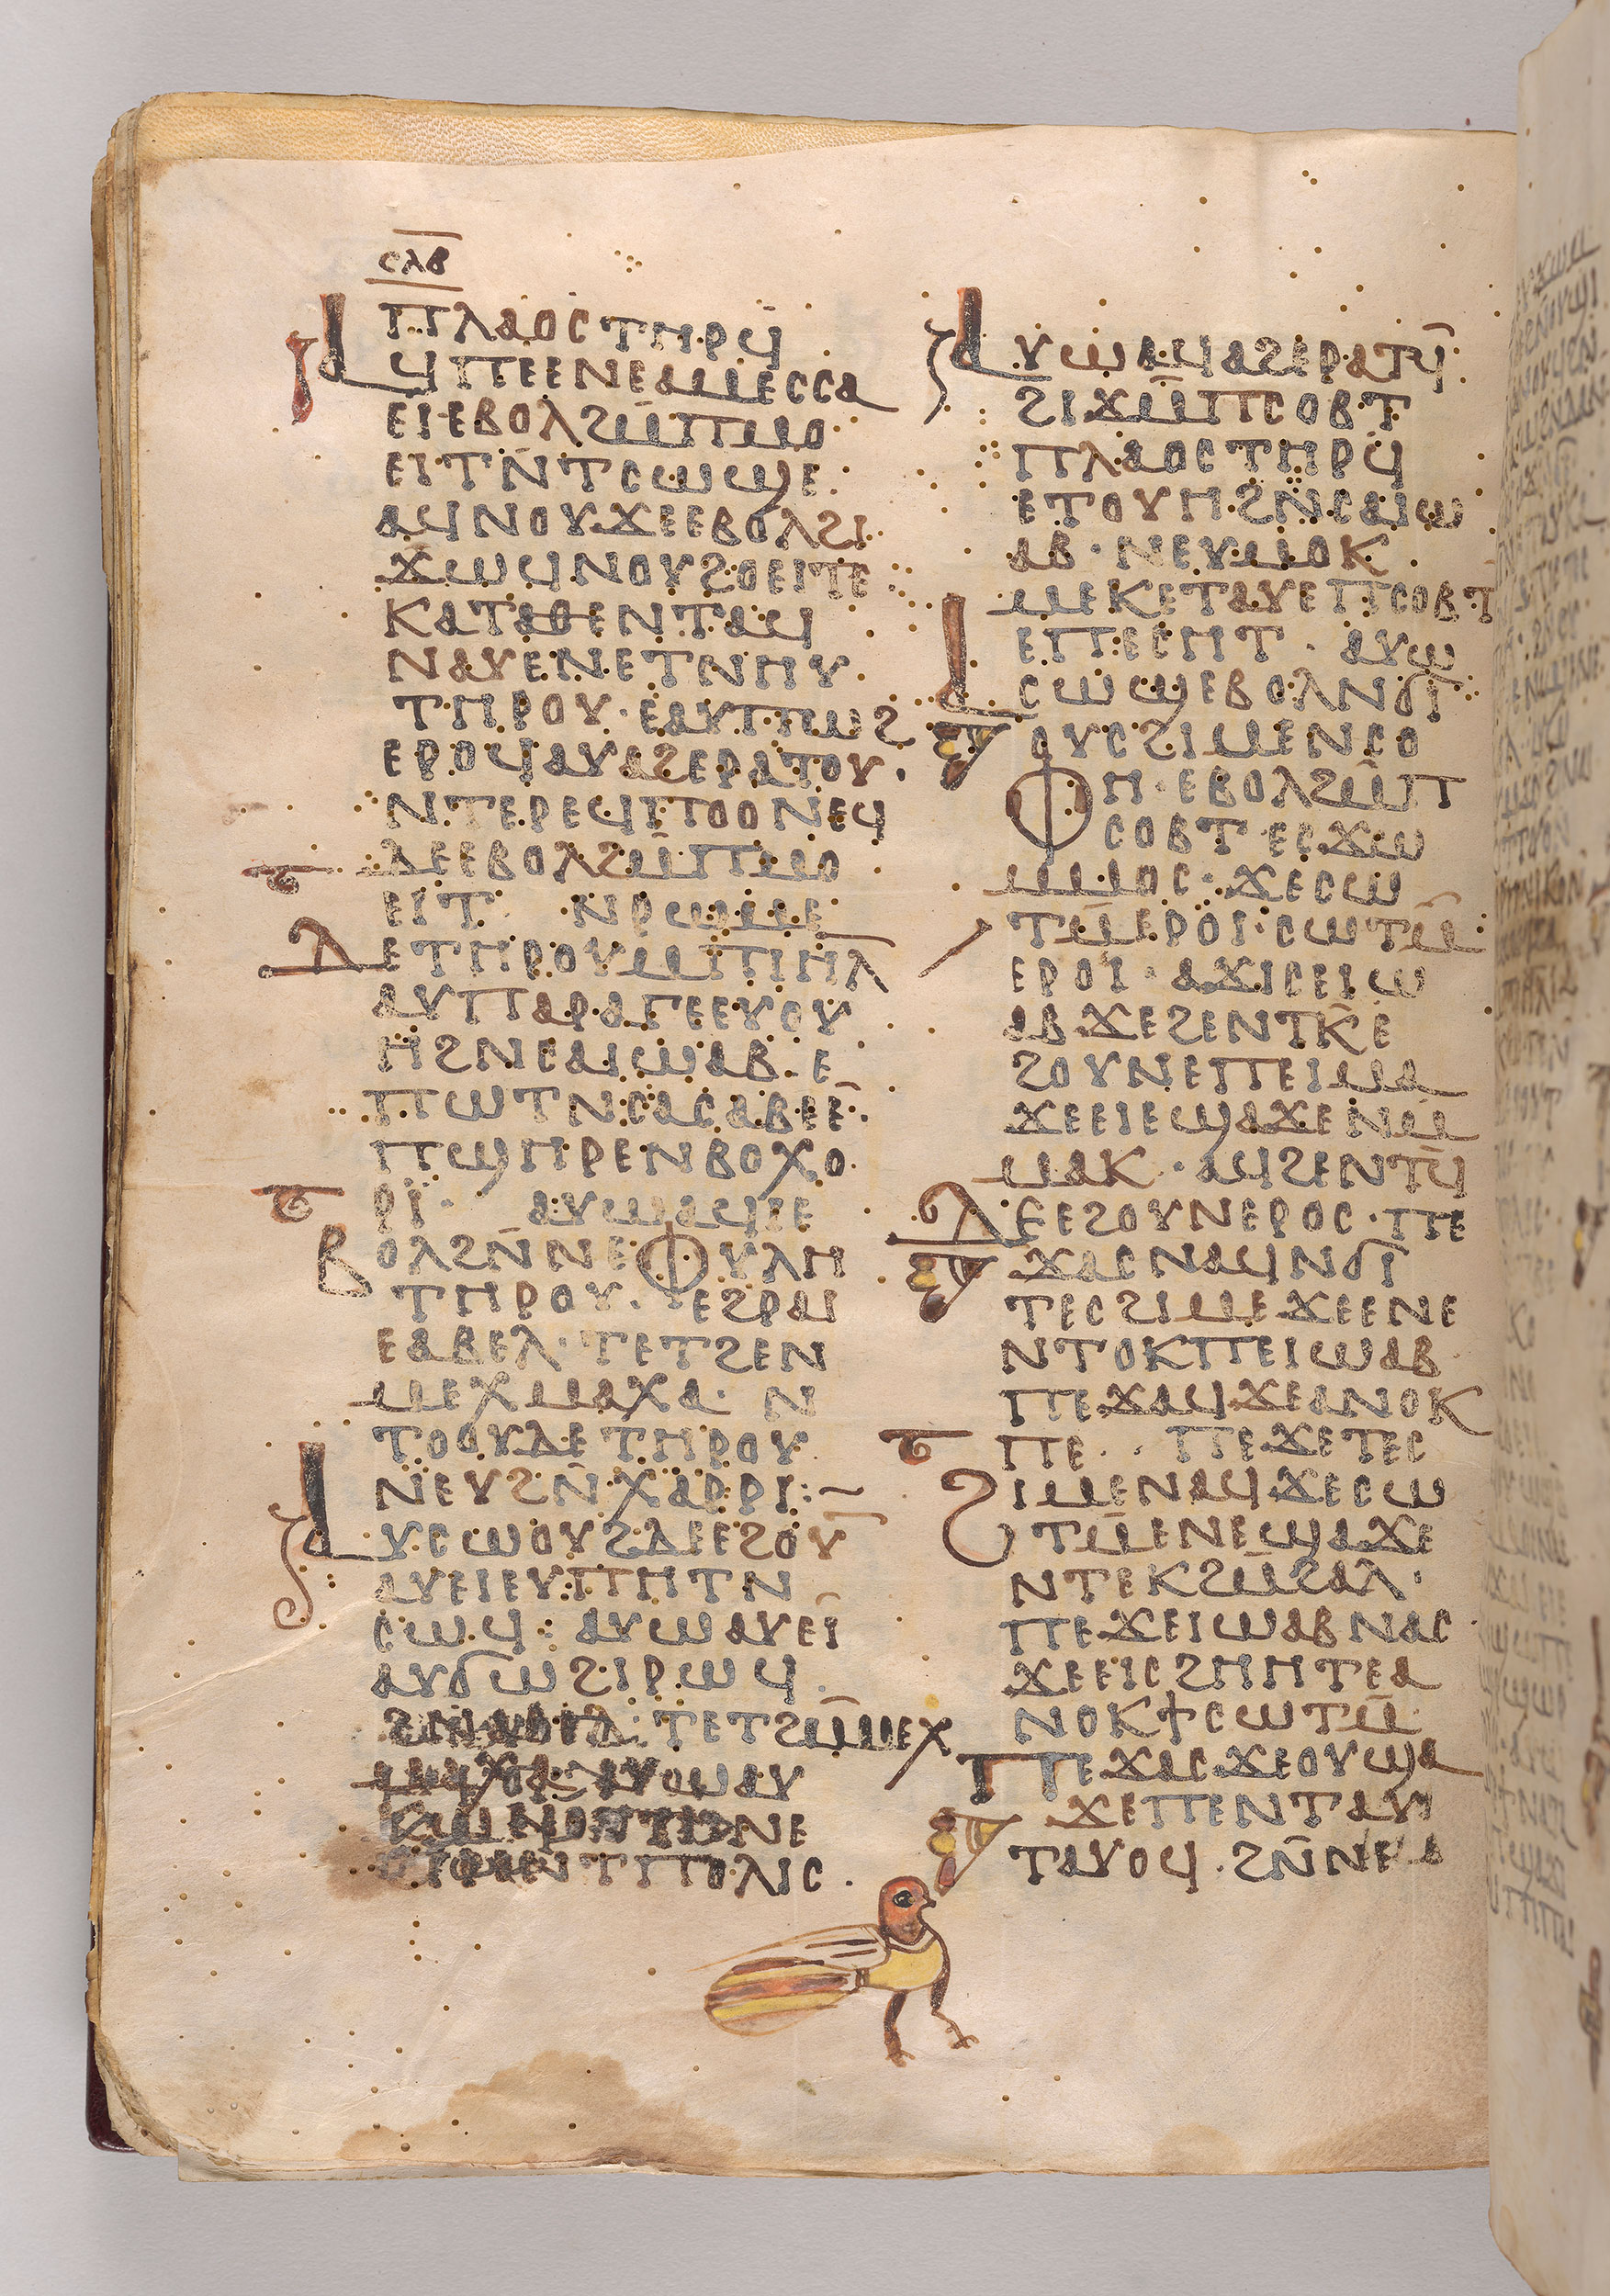 ⲥⲗⲃ
ⲡⲗⲁⲟⲥⲧⲏⲣϥ
ⲁϥⲡⲉⲉⲛⲉⲁⲙⲉⲥⲥⲁ
ⲉⲓⲉⲃⲟⲗϩⲙ̄ⲡⲙⲟ
ⲉⲓⲧⲛ̄ⲧⲥⲱϣⲉ
ⲁϥⲛⲟⲩϫⲉⲉⲃⲟⲗϩⲓ
ϫⲱϥⲛⲟⲩϩⲟⲉⲓⲧⲉ
ⲕⲁⲧⲁⲑⲉⲛⲧⲁϥ
ⲛⲁⲩⲉⲛⲉⲧⲛⲏⲩ
ⲧⲏⲣⲟⲩ· ⲉⲁⲩⲡⲱϩ
ⲉⲣⲟϥⲁⲩⲁϩⲉⲣⲁⲧⲟⲩ.
ⲛⲧⲉⲣⲉϥⲡⲟⲟⲛⲉϥ
ⲇⲉⲉⲃⲟⲗϩⲙ̄ⲡⲙⲟ
ⲉⲓⲧ ⲛⲣⲱⲙⲉ
ⲇⲉⲧⲏⲣⲟⲩⲙⲡⲓⲏ̄ⲗ̄
ⲁⲩⲡⲁⲣⲁⲅⲉⲉⲩⲟⲩ
ⲏϩⲛⲥⲁⲓⲱⲁⲃ· ⲉ
ⲡⲱⲧⲛⲥⲁⲥⲁⲃⲉⲉ̄·
ⲡϣⲏⲣⲉⲛⲃⲟⲭⲟ
ⲣⲓ̈· ⲁⲩⲱⲁϥⲓⲉ
ⲃⲟⲗϩⲛ̄ⲛⲉⲫⲩⲗⲏ
ⲧⲏⲣⲟⲩ· ⲉϩⲣⲁⲓ
ⲉⲁⲃⲉⲗ· ⲧⲉⲧϩⲉⲛ
ⲙⲉⲭⲙⲁⲭⲁ· ⲛ
ⲧⲟⲟⲩⲇⲉⲧⲏⲣⲟⲩ
ⲛⲉⲩϩⲛ̄ⲭⲁⲣⲣⲓ:~
ⲁⲩⲥⲱⲟⲩϩⲇⲉⲉϩⲟⲩ̄
ⲁⲩⲉⲓⲉⲩⲡⲏⲧⲛ
ⲥⲱϥ: ⲁⲩⲱⲁⲩⲉⲓ̄
ⲁⲩϭⲱϩⲓⲣⲱϥ
ⲧⲉⲧϩⲙ̄ⲙⲉⲭ
ⲱⲁⲩ
ⲛⲉ
ⲛⲧⲡⲟⲗⲓⲥ.
ⲁⲩⲱⲁϥⲁϩⲉⲣⲁⲧϥ̄
ϩⲓϫⲙ̄ⲡⲥⲟⲃⲧ
ⲡⲗⲁⲟⲥⲧⲏⲣϥ
ⲉⲧⲟⲩⲏϩⲛ̄ⲥⲁⲓⲱ
ⲁⲃ· ⲛⲉⲩⲙⲟⲕ
ⲙⲉⲕⲉⲧⲁⲩⲉⲡⲥⲟⲃⲧ̄
ⲉⲡⲉⲥⲏⲧ· ⲁⲩⲱ
ⲁⲥⲱϣⲉⲃⲟⲗⲛϭⲓ
ⲟⲩⲥϩⲓⲙⲉⲛⲥⲟ
ⲫⲏ· ⲉⲃⲟⲗϩⲙ̄ⲡ
ⲥⲟⲃⲧ· ⲉⲥϫⲱ
ⲙⲙⲟⲥ· ϫⲉⲥⲱ
ⲧⲙ̄ⲉⲣⲟⲓ· ⲥⲱⲧⲙ̄
ⲉⲣⲟⲓ̈· ⲁϫⲓⲥⲉⲓⲱ
ⲁⲃϫⲉϩⲉⲛⲧⲕ̄ⲉ
ϩⲟⲩⲛⲉⲡⲉⲓⲙⲁ
ϫⲉⲉⲓⲉϣⲁϫⲉⲛⲙ̄
ⲙⲁⲕ· ⲁϥϩⲉⲛⲧϥ̄
ⲇⲉⲉϩⲟⲩⲛⲉⲣⲟⲥ· ⲡⲉ
ϫⲁⲥⲛⲁϥⲛϭⲓ
ⲧⲉⲥϩⲓⲙⲉϫⲉⲉⲛⲉ
ⲛⲧⲟⲕⲡⲉⲓⲱⲁⲃ
ⲡⲉϫⲁϥϫⲉⲁⲛⲟⲕ
ⲡⲉ· ⲡⲉϫⲉⲧⲉⲥ
ϩⲓⲙⲉⲛⲁϥϫⲉⲥⲱ
ⲧⲙ̄ⲉⲛⲉϣⲁϫⲉ
ⲛⲧⲉⲕϩⲙ̄ϩⲁⲗ·
ⲡⲉϫⲉⲓⲱⲁⲃⲛⲁⲥ
ϫⲉⲉⲓⲥϩⲏⲏⲧⲉⲁ
ⲛⲟⲕϯⲥⲱⲧⲙ̄
ⲡⲉϫⲁⲥϫⲉⲟⲩϣⲁ
ϫⲉⲡⲉⲛⲧⲁⲩ
ⲧⲁⲩⲟϥ· ϩⲛ̄ⲛⲉ